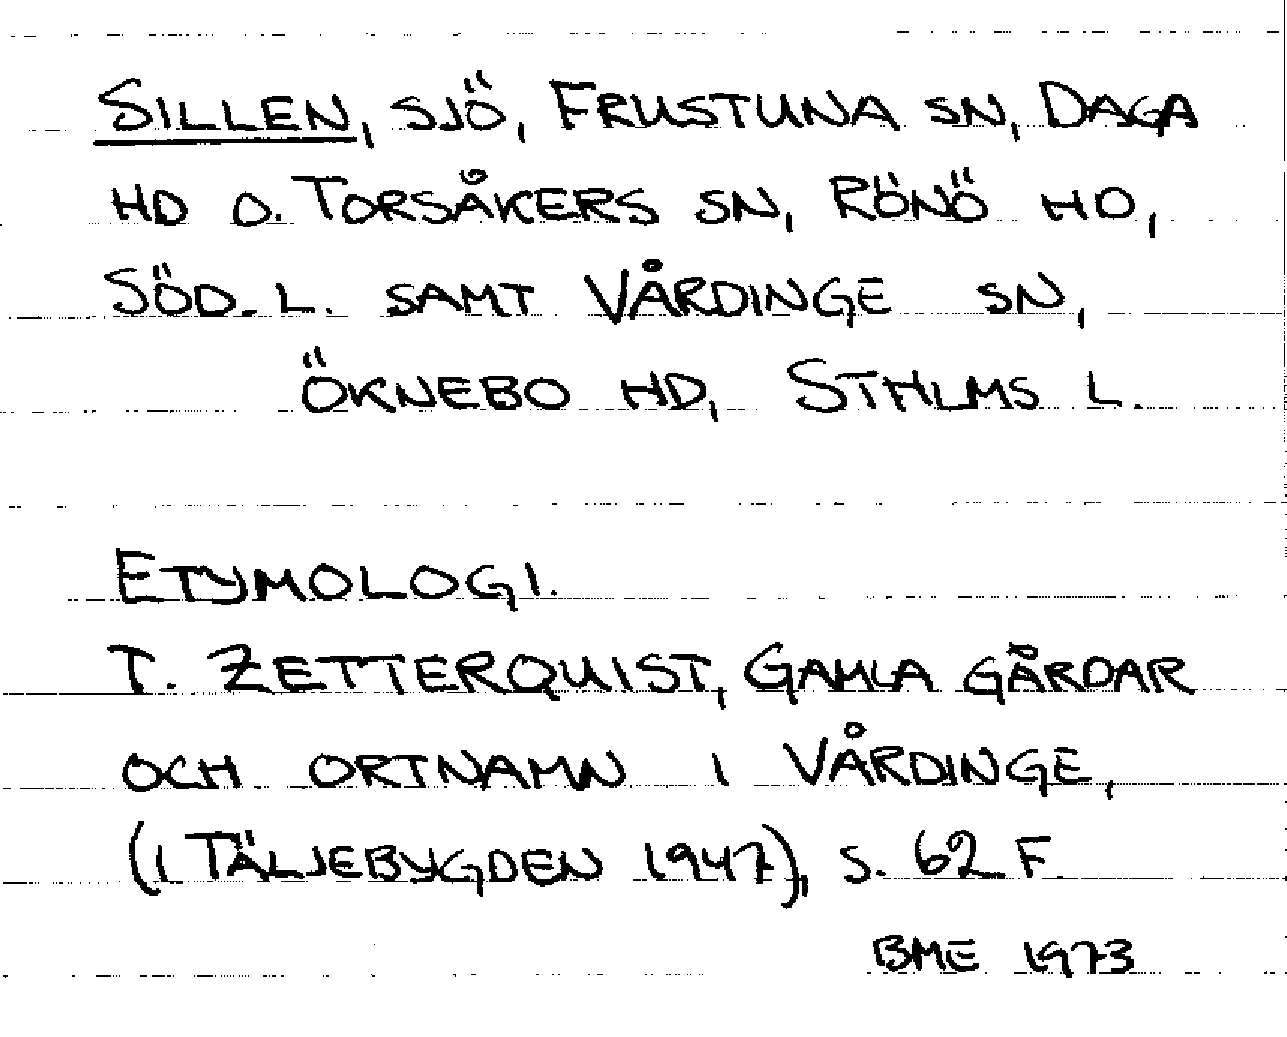 SILLEN, SJÖ, FRUSTUNA SN, DAGA
HD O. TORSÅKERS SN, RÖNÖ HD,
SÖD. L. SAMT VÅRDINGE SN,
ÖKNEBO HD, STHLMS L.
ETYMOLOGI.
T. ZETTERQUIST, GAMLA GÅRDAR
OCH ORTNAMN I VÅRDINGE,
(I TÄLJEBYGDEN 1947), S. 62 F.
BME 1973